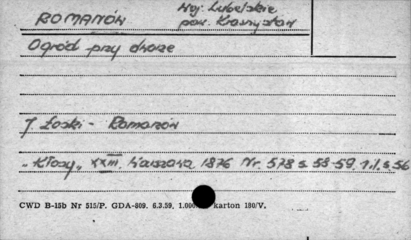 Woj. Lubelskie
ROMANÓW pow. Krasnystaw
Ogród przy dworze
J. Łoski - Romanów
"Kłosy" XXIII. Warszawa 1876 Nr. 578 s. 58-59, 1 il. s. 56
CWD B-15b Nr 515/P. GDA-809. 6.3.59. 1.000 karton 180/V.